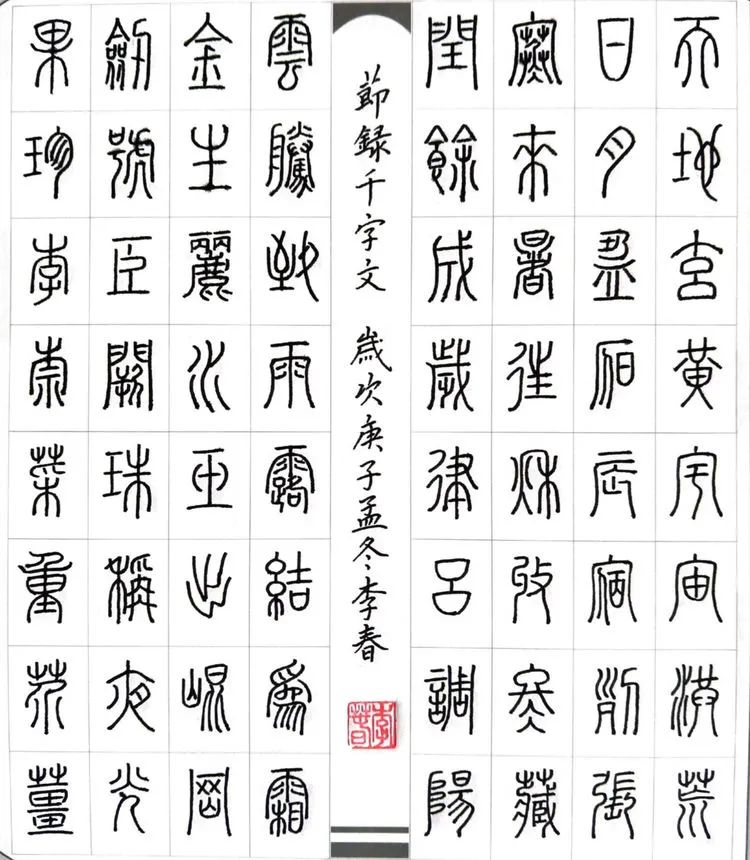 天地玄黃宇宙洪荒
日月盈昃辰宿列張
寒來暑往秋收冬藏
閏餘成歲律呂調陽
節録千字文 歲次庚子孟冬李春
李春
雲騰致雨露結爲霜
金生麗水玉出崐岡
劍號巨闕珠稱夜光
果珍李柰菜重芥薑